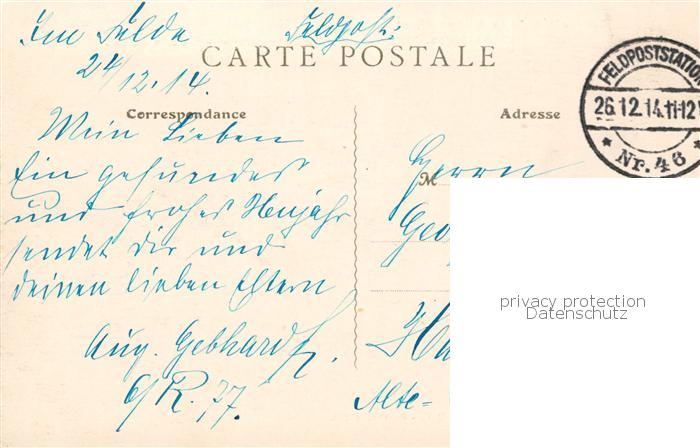 Im Felde Feldpost.
24/12.14.
CARTE POSTALE
FELDPOSTSTATION
26.12.14.11-12
Nr. 46
Correspondance
Adresse
Mein Lieben
Ein gesundes
und frohes Neujahr
sendet dir und
deinen lieben Eltern
Aug. Gebhardt.
6/R. 27.
M Herrn
Geo
Alte-
privacy protection
Datenschutz